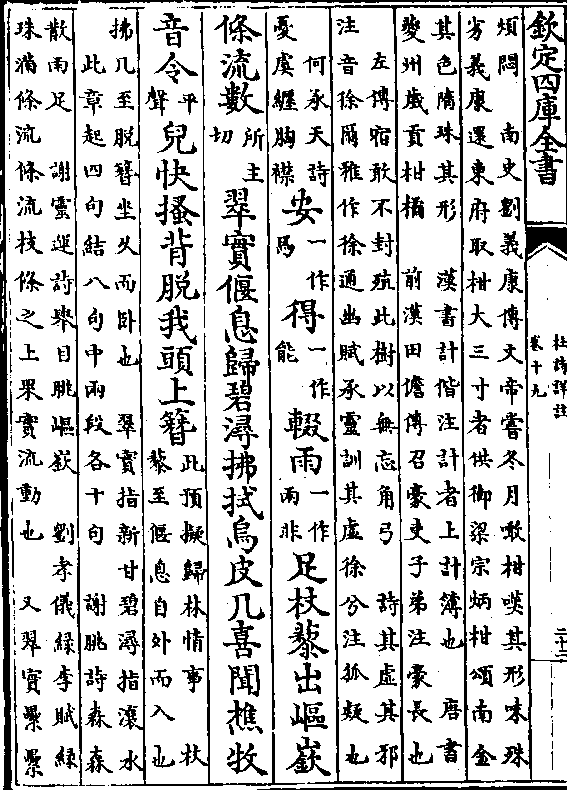 欽定四庫全書
杜詩詳註
卷十九
二十三
煩悶 南史劉義康傳文帝嘗冬月噉柑嘆其形味殊
劣義康還東府取柑大三寸者供御 梁宗炳柑頌南金
其色隋珠其形 漢書計偕注計者上計簿也 唐書
夔州歲貢柑橘 前漢田儋傳召豪吏子弟注豪長也
左傳宿敢不封殖此樹以無忘角弓 詩其虛其邪
注音徐爾雅作徐通幽賦承靈訓其虛徐兮注狐疑也
何承天詩
憂虞纏胸襟
安一作焉得一作能輟雨一作雨非足杖藜出嶇嶔
條流數所主切翠實偃息歸碧潯拂拭烏皮几喜聞樵牧
音令平聲兒快搔背脫我頭上簪此預擬歸林情事 杖
藜至偃息自外而入也
拂几至脫簪坐久而卧也 翠實指新甘碧潯指瀼水
此章起四句結八句中兩段各十句 謝朓詩森森
散雨足 謝靈運詩舉目眺嶇嶔 劉孝儀綠李賦綠
珠滿條流條流枝條之上果實流動也 又翠實纍纍